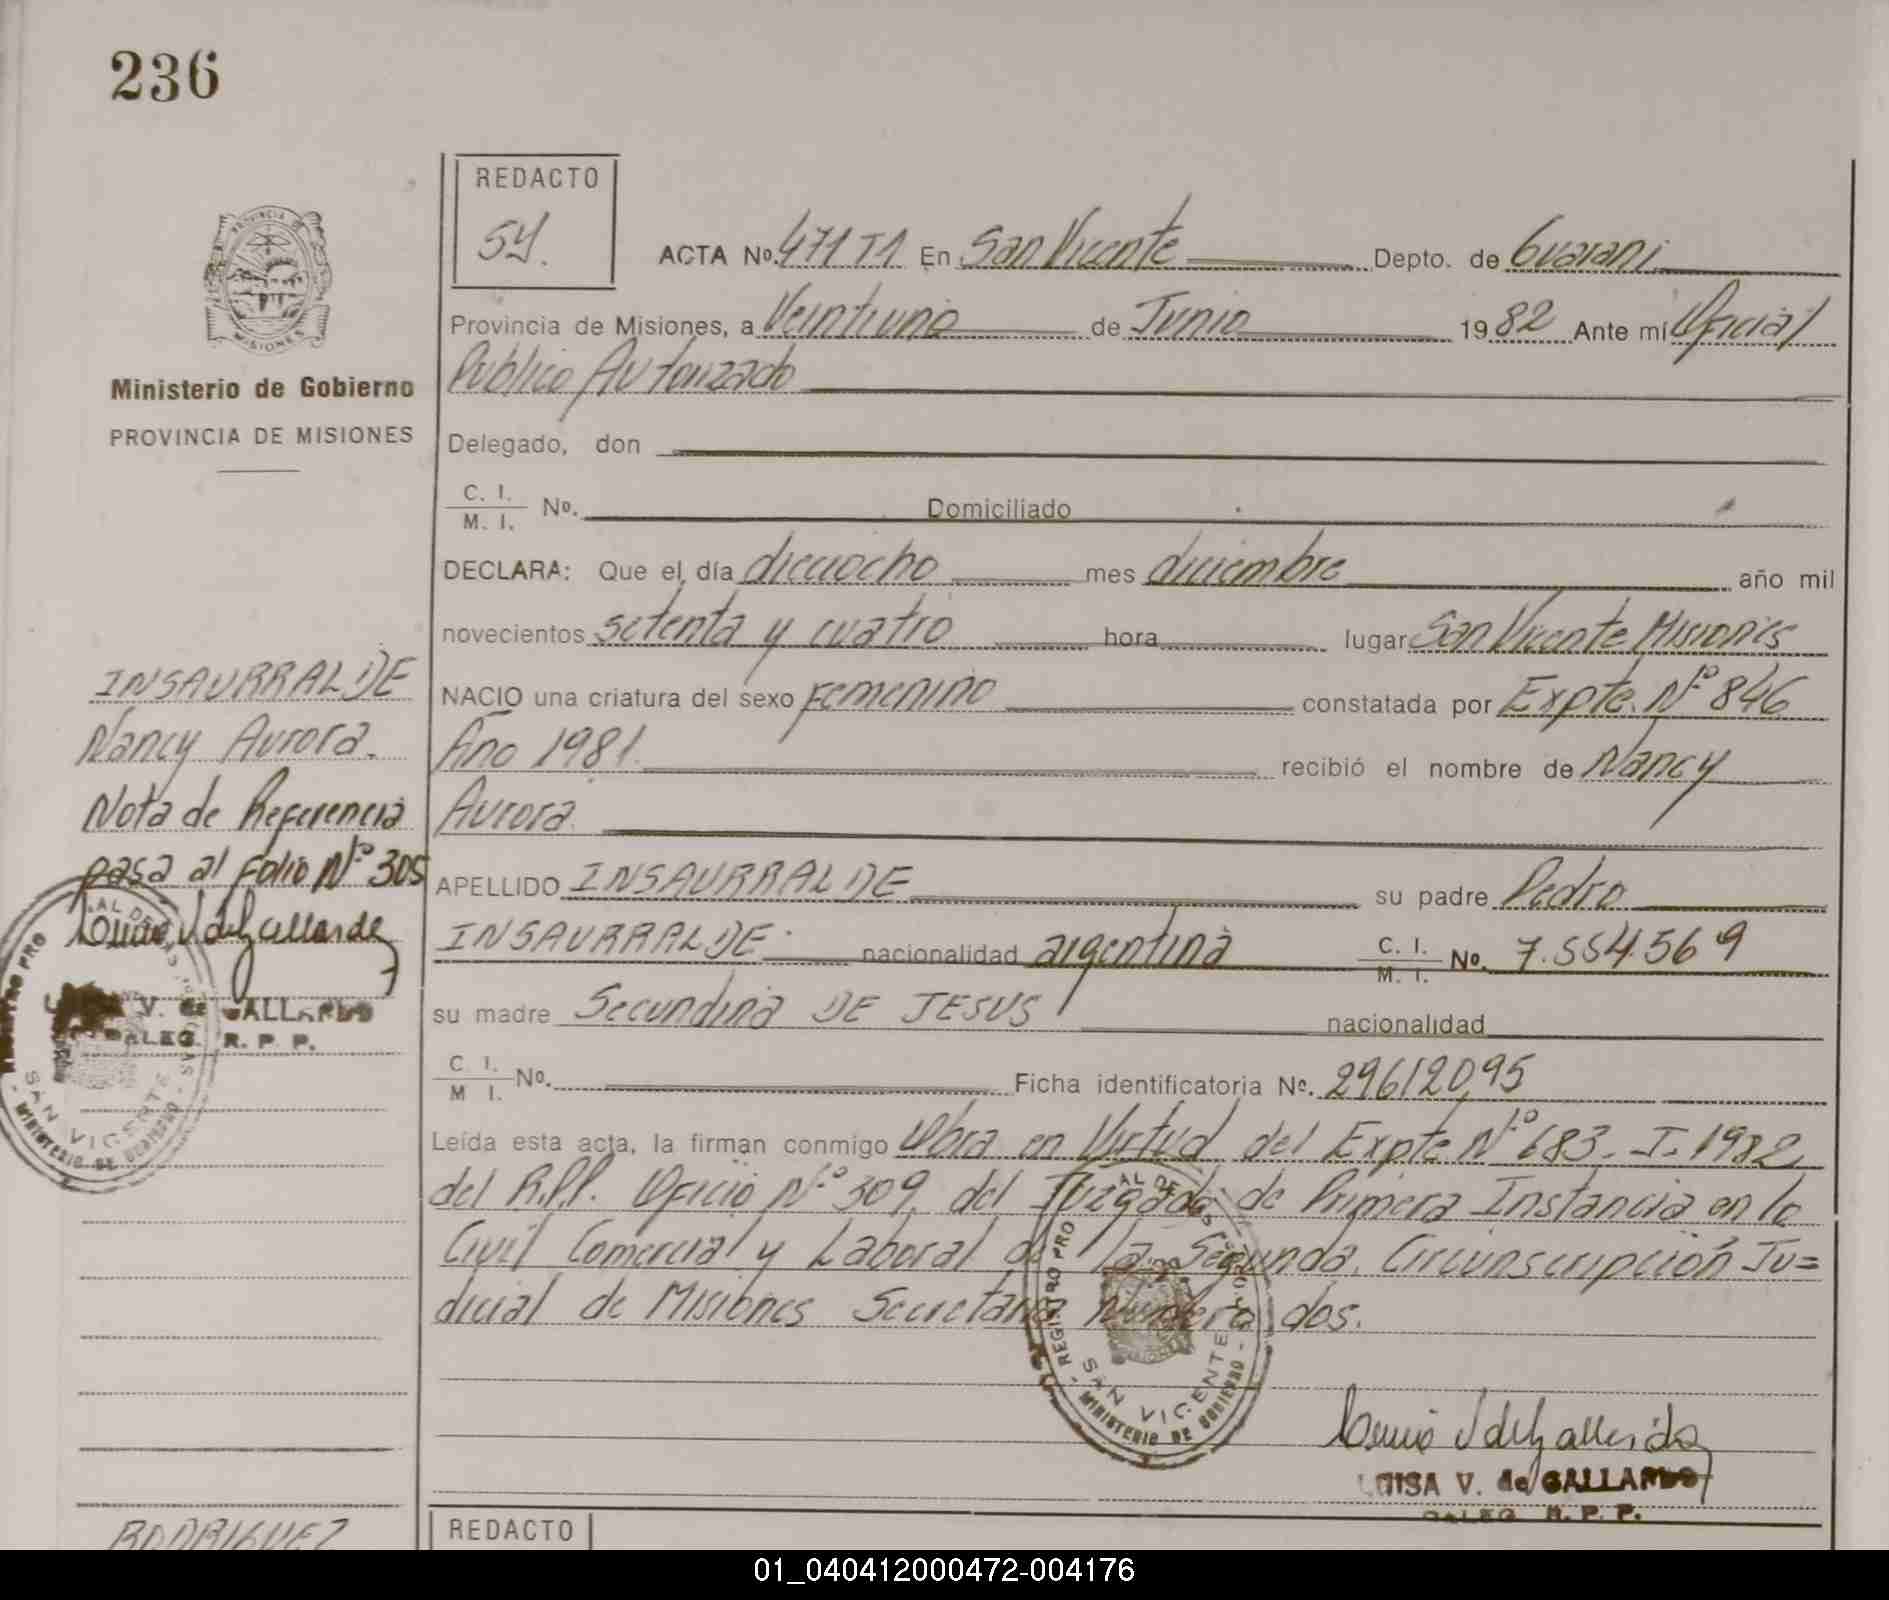 236
REDACTO
SY.
ACTA Nº. 471 T1 En San Vicente Depto. de Guarani
Provincia de Misiones, a Veintiuno de Junio 1982 Ante mí Oficial
Publico Autorizado
Delegado, don
C. I. / M. I. Nº. Domiciliado
DECLARA: Que el día dieciocho mes diciembre año mil
novecientos setenta y cuatro hora lugar San Vicente Misiones
NACIO una criatura del sexo Femenino constatada por Expte. Nº 846
Año 1981. recibió el nombre de Nancy
Aurora.
APELLIDO INSAURRALDE su padre Pedro
INSAURRALDE nacionalidad argentina C. I. / M. I. Nº. 7.554.569
su madre Secundina DE JESUS nacionalidad
C. I. / M I. Nº. Ficha identificatoria Nº. 29612095
Leída esta acta, la firman conmigo Obra en Virtud del Expte Nº 683. I. 1982
del R.P.P. Oficio Nº 309, del Juzgado de Primera Instancia en lo
Civil Comercial y Laboral de la Segunda Circunscripción Ju=
dicial de Misiones Secretaria Número dos.
LUISA V. de GALLARDO
DALEG R. P. P.
PROVINCIA DE
MISIONES
Ministerio de Gobierno
PROVINCIA DE MISIONES
INSAURRALDE
Nancy Aurora.
Nota de Referencia
pasa al Folio Nº 305
V. de GALLARDO
DALEG. R. P. P.
REGISTRO PRO AL DE
SAN VICENTE
MINISTERIO DE GOBIERNO
REGISTRO PRO AL DE
SAN VICENTE
MINISTERIO DE GOBIERNO
RODRIGUEZ
REDACTO
01_040412000472-004176